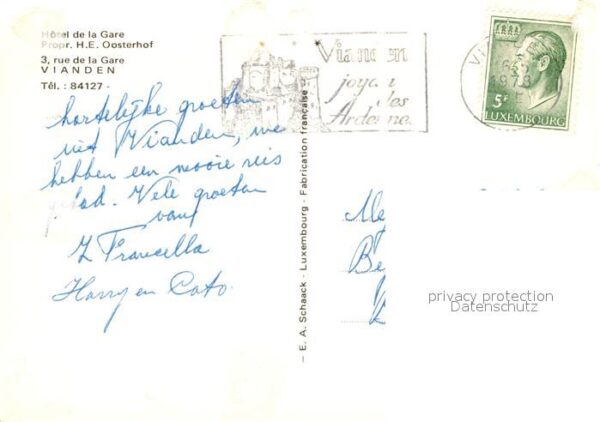 Hôtel de la Gare
Propr. H.E. Oosterhof
3, rue de la Gare
VIANDEN
Tél. : 84127 -
Vianden
joyau
des
Ardennes
5F
LUXEMBOURG
1978
hartelijke groeten
uit Vianden, we
hebben een mooie reis
gehad. Vele groeten
van
Francella
Harry en Cato.
— E. A. Schaack - Luxembourg - Fabrication française
Be
privacy protection
Datenschutz